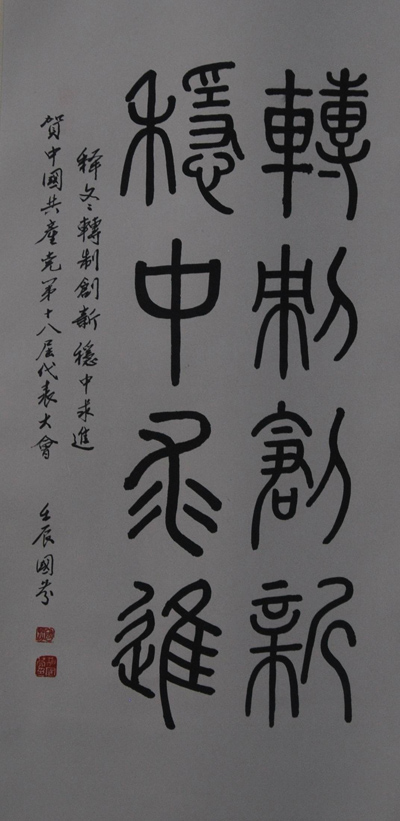 轉制創新
穩中求進
釋文：轉制創新 穩中求進
賀中國共產党第十八屆代表大會
壬辰國芬